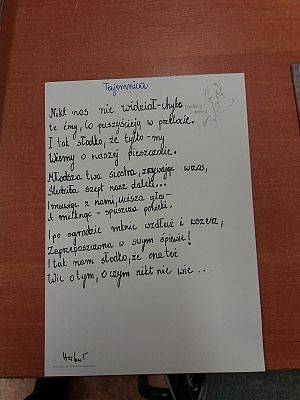 Tajemnica
Nikt nas nie widział-chyba
te ćmy, co puszyścieją w przelocie.
I tak słodko, że tylko-my
Wiemy o naszej pieszczocie.
Młodsza twa siostra, zrywając wrzos,
Śledziła szept nasz daleki...
I mówiąc z nami, ucisza głos-
A milknąc - spuszcza powieki.
I po ogrodzie mknie wzdłuż i wszerz,
Zaprzepaszczona w swym śpiewie!
I tak nam słodko, że ona też
Wie o tym, o czym nikt nie wie...